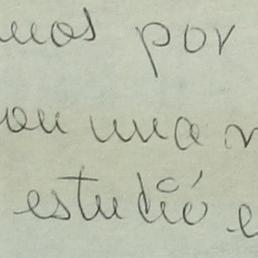 mos por
on una
estudió e